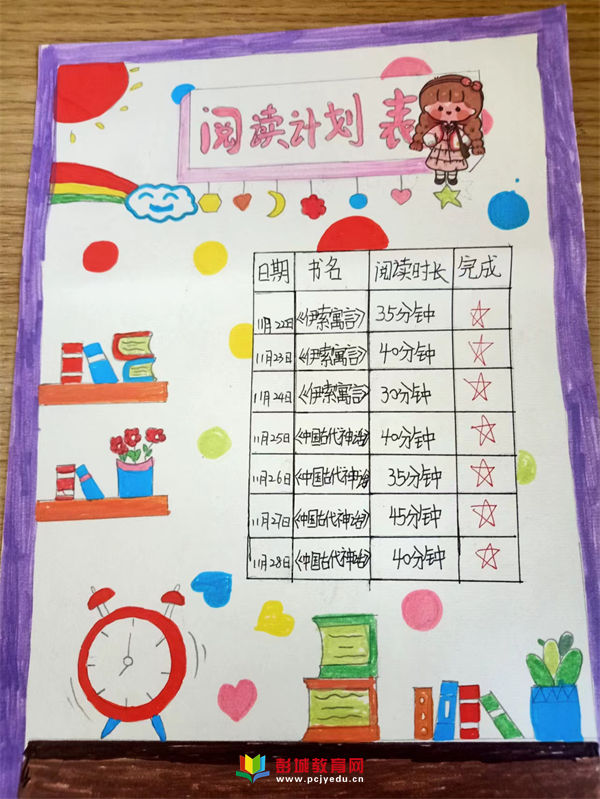 阅读计划表
日期 书名 阅读时长 完成
11月22日 《伊索寓言》 35分钟
11月23日 《伊索寓言》 40分钟
11月24日 《伊索寓言》 30分钟
11月25日 《中国古代神话》 40分钟
11月26日 《中国古代神话》 35分钟
11月27日 《中国古代神话》 45分钟
11月28日 《中国古代神话》 40分钟
彭城教育网
www.pcjyedu.cn